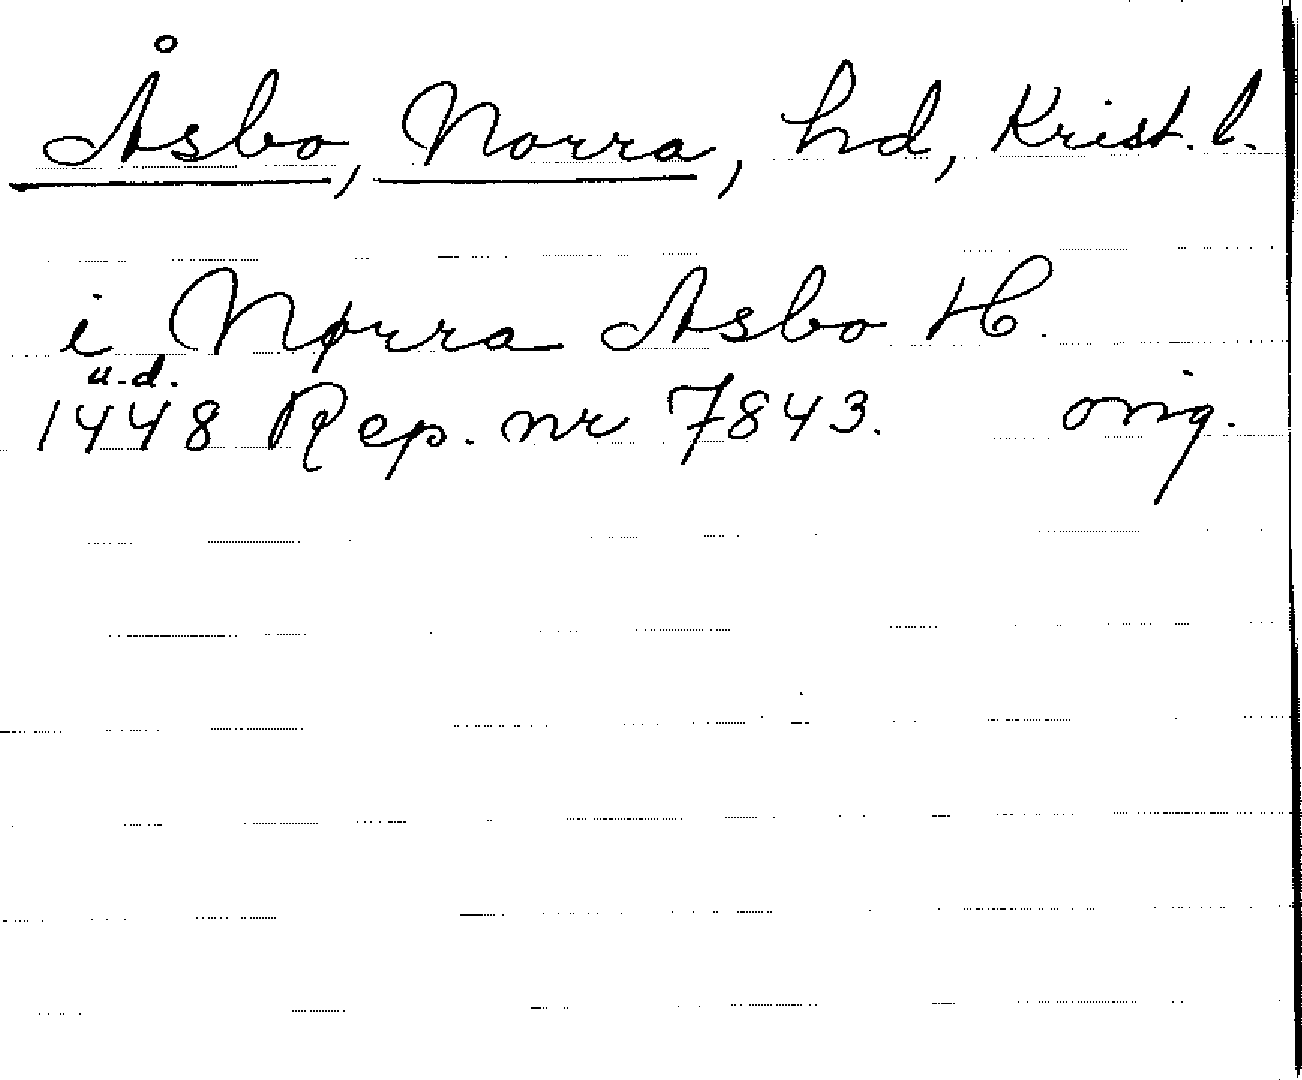 Åsbo, Norra, hd, Krist. l.
i Nørra Asbo H.
u.d.
1448 Rep. nr 7843. orig.